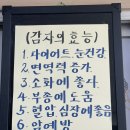 (감자의 효능)
1. 다이어트 눈건강
2. 면역력 증가
3. 소화에 좋다
4. 부종에 도움
5. 혈압 심장에좋음
6. 암예방